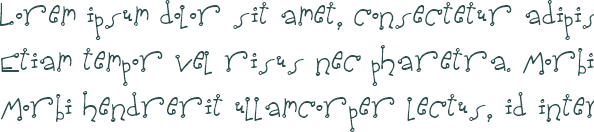 Lorem ipsum dolor sit amet, consectetur adipis
Etiam tempor vel risus nec pharetra. Morbi
Morbi hendrerit ullamcorper lectus, id inter